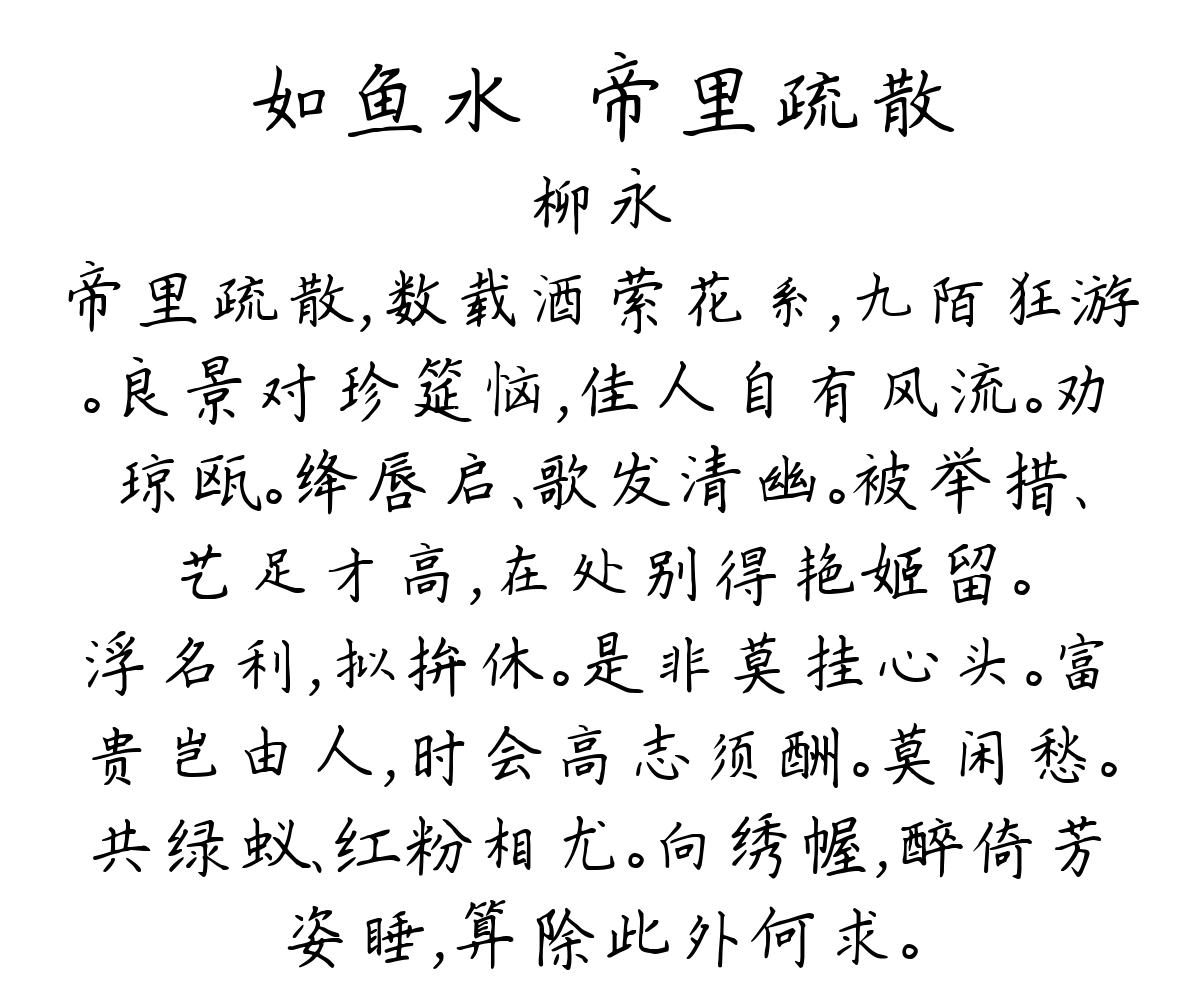 如鱼水 帝里疏散
柳永
帝里疏散,数载酒萦花系,九陌狂游
。良景对珍筵恼,佳人自有风流。劝
琼瓯。绛唇启、歌发清幽。被举措、
艺足才高,在处别得艳姬留。
浮名利,拟拚休。是非莫挂心头。富
贵岂由人,时会高志须酬。莫闲愁。
共绿蚁、红粉相尤。向绣幄,醉倚芳
姿睡,算除此外何求。